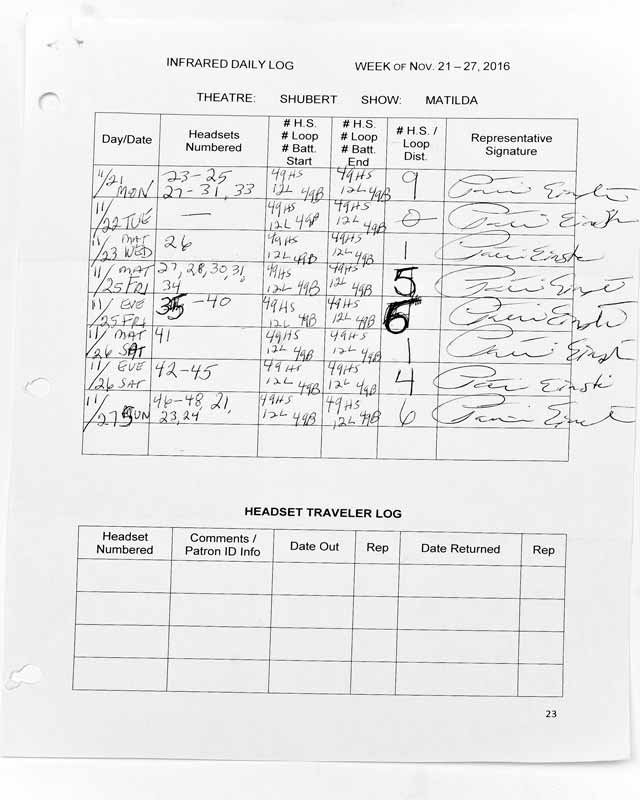 INFRARED DAILY LOG WEEK OF NOV. 21 – 27, 2016
THEATRE: SHUBERT SHOW: MATILDA
Day/Date Headsets Numbered # H.S. # Loop # Batt. Start # H.S. # Loop # Batt. End # H.S. / Loop Dist. Representative Signature
11/21 MON 23-25 27-31, 33 49HS 12L 49B 49HS 12L 49B 9
11/22 TUE — 49HS 12L 49B 49HS 12L 49B 0
11/23 MAT WED 26 49HS 12L 49B 49HS 12L 49B 1
11/25 MAT FRI 27, 28, 30, 31, 34 49HS 12L 49B 49HS 12L 49B 5
11/25 EVE FRI 35-40 49HS 12L 49B 49HS 12L 49B 6
11/26 MAT SAT 41 49HS 12L 49B 49HS 12L 49B 1
11/26 EVE SAT 42-45 49HS 12L 49B 49HS 12L 49B 4
11/27 SUN 46-48, 21, 23, 24 49HS 12L 49B 49HS 12L 49B 6
HEADSET TRAVELER LOG
Headset Numbered Comments / Patron ID Info Date Out Rep Date Returned Rep
23